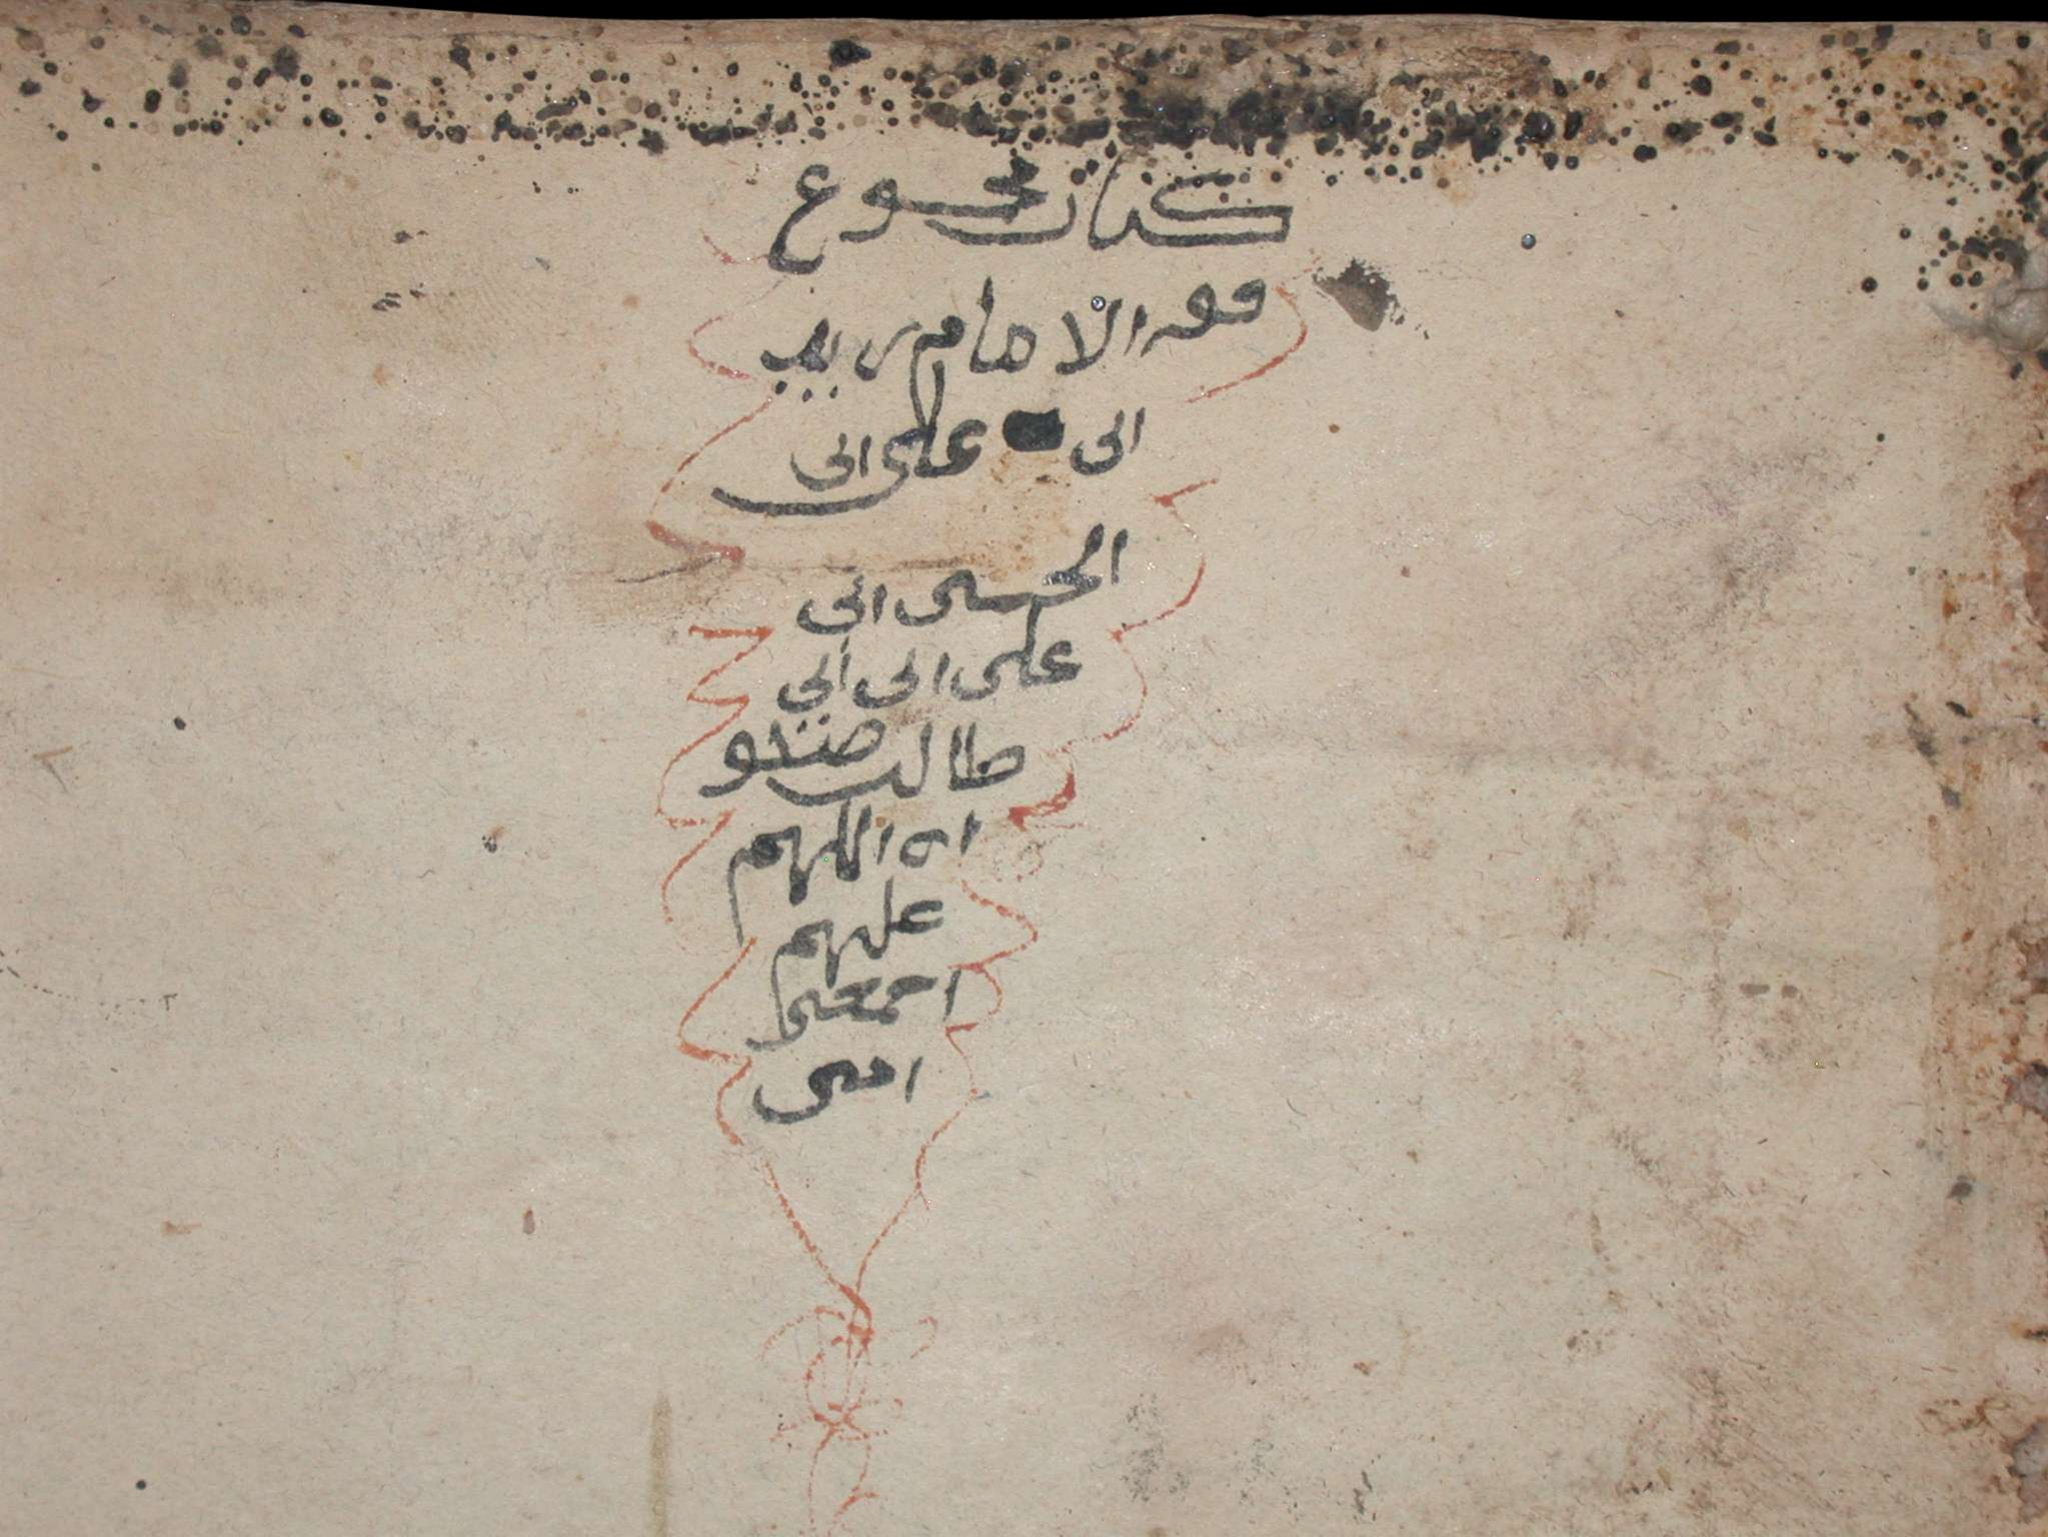 كتاب مجموع
فقه الامام زيد
ابن علي ابن
الحسين ابن
علي ابن ابي
طالب صلو
ات اللهم
عليهم
اجمعين
امين